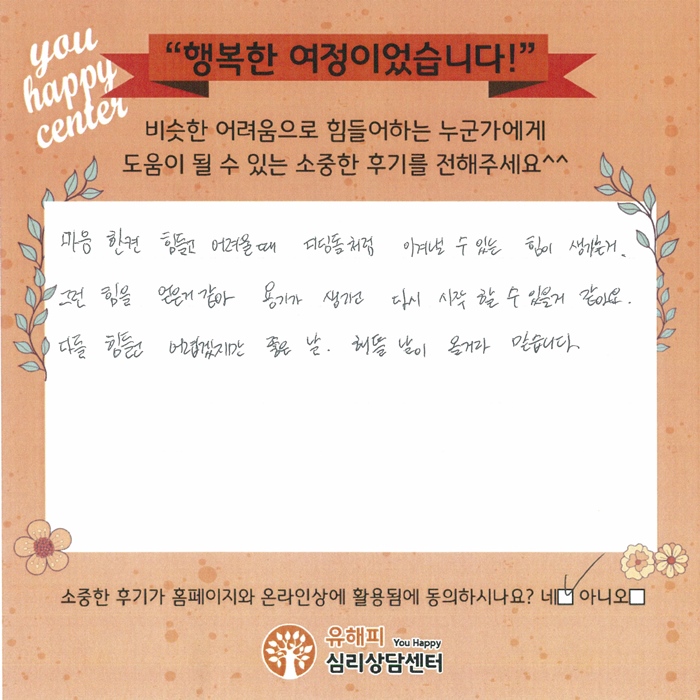 you
happy
center
“행복한 여정이었습니다!”
비슷한 어려움으로 힘들어하는 누군가에게
도움이 될 수 있는 소중한 후기를 전해주세요^^
마음 한켠 힘들고 어려울때 디딤돌처럼 이겨낼 수 있는 힘이 생기는거.
그런 힘을 얻은거 같아 용기가 생기고 다시 시작 할 수 있을거 같아요.
다들 힘들고 어렵겠지만 좋은 날. 해뜰 날이 올거라 믿습니다.
소중한 후기가 홈페이지와 온라인상에 활용됨에 동의하시나요? 네 아니오
유해피 You Happy
심리상담센터